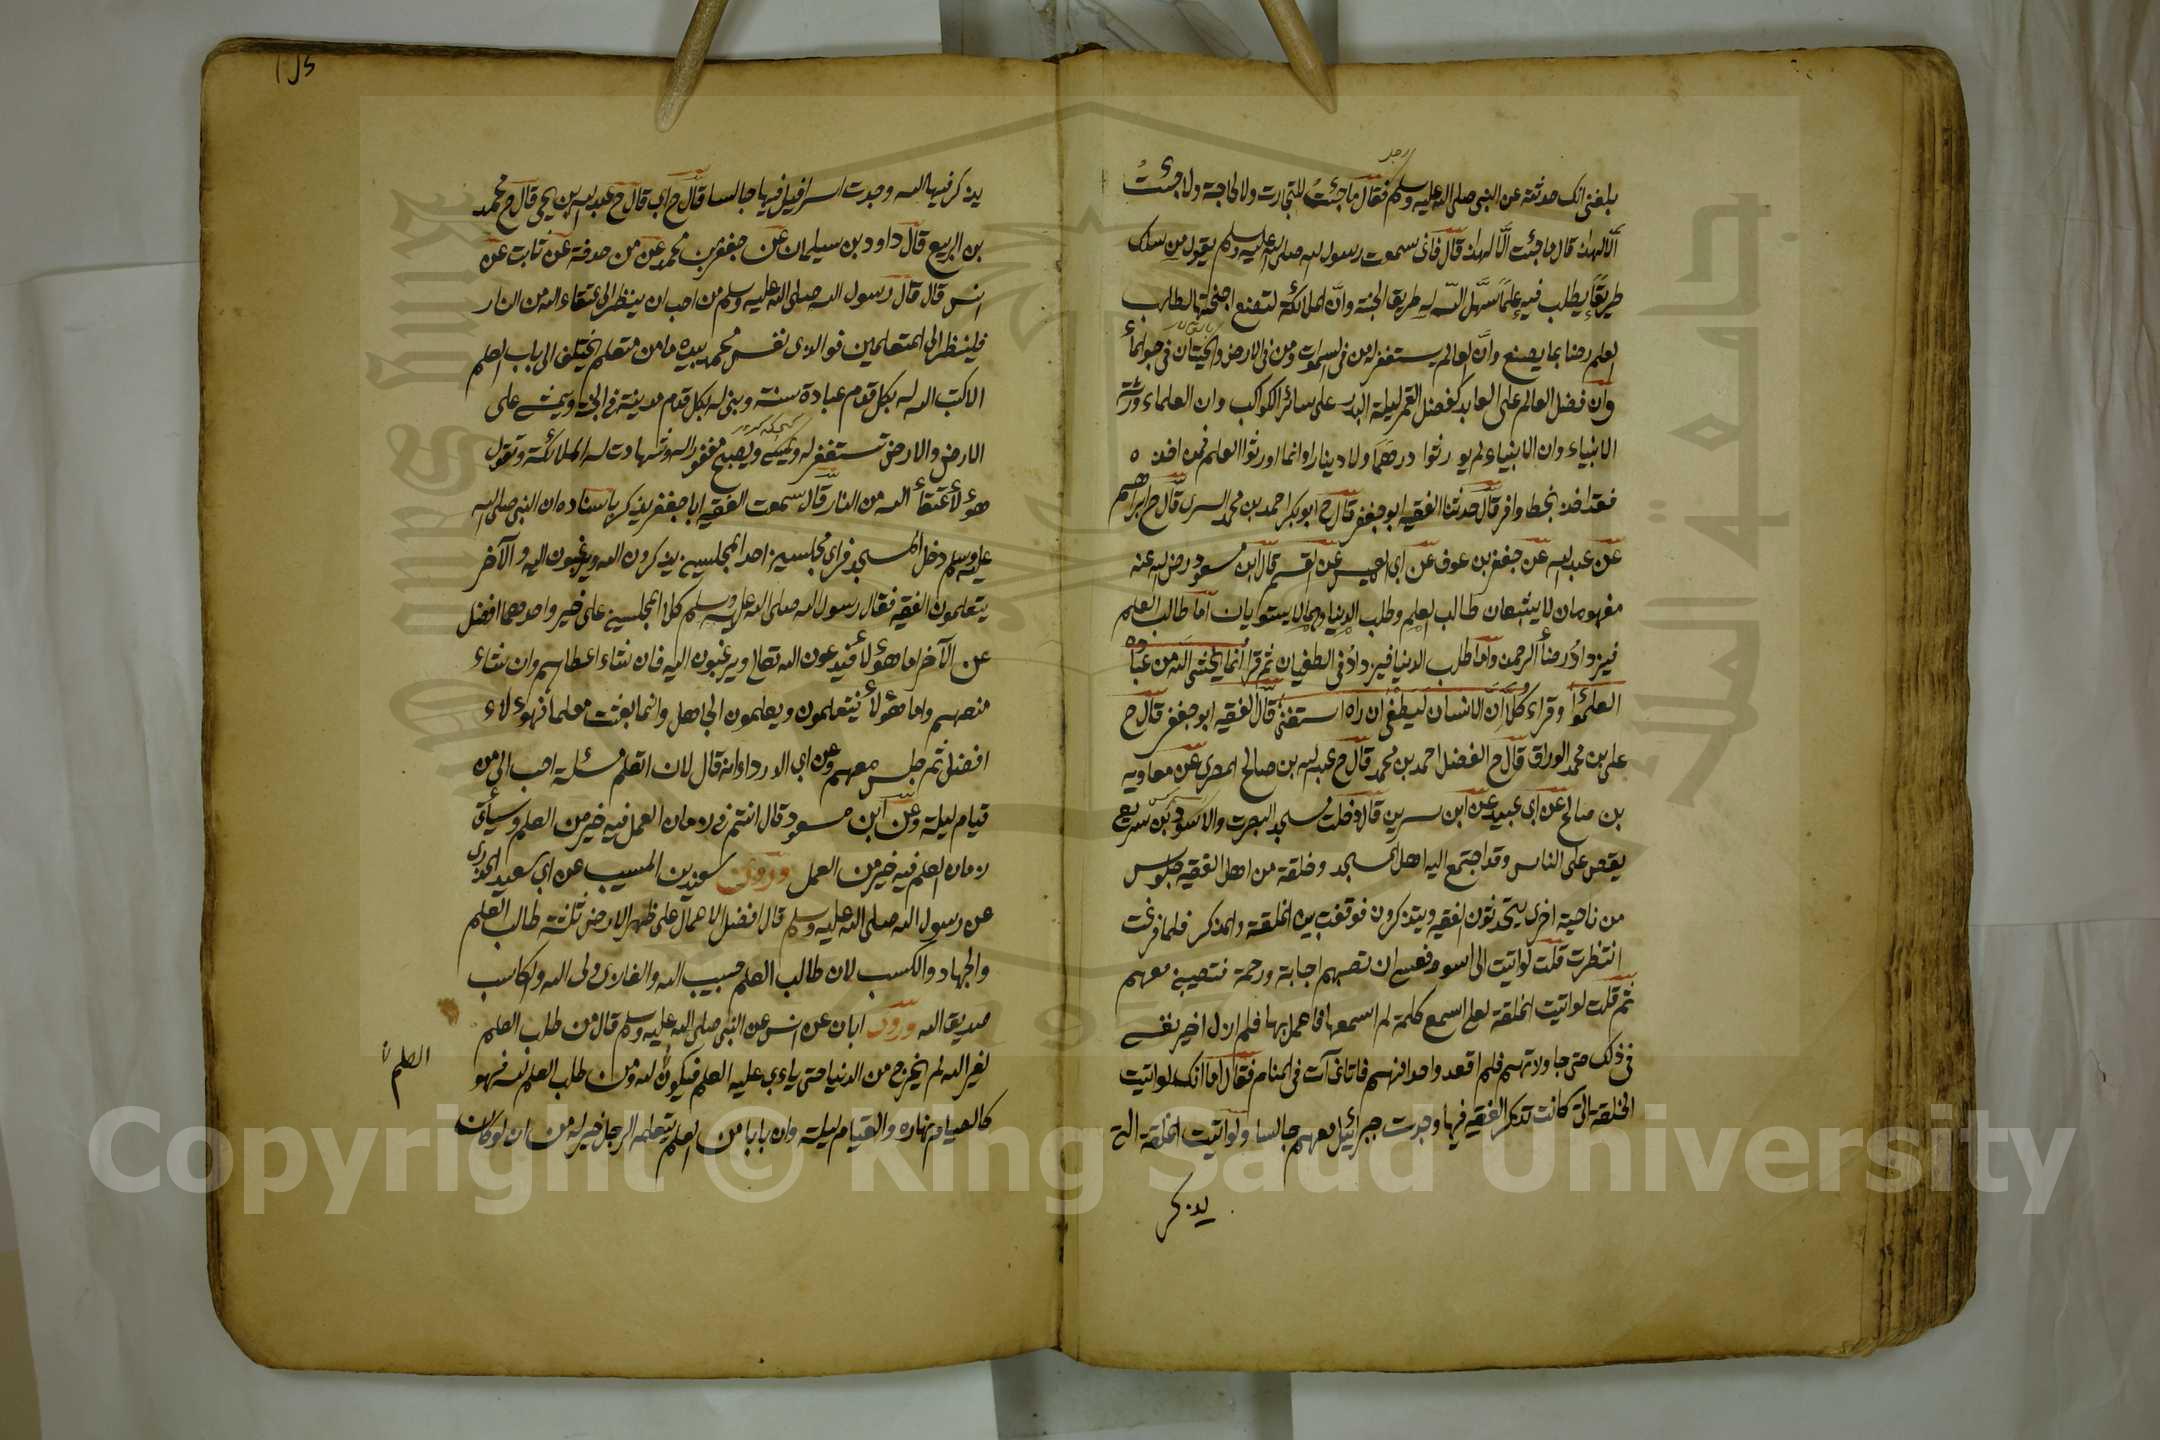 بلغنى انك حدثته عن النبى صلى الله عليه وسلم فقال ما جئت للتجارت ولا لحاجة ولا جئت
رجل
الا لهذا قال ما جئت الا لهذا قال فانى سمعت رسول الله صلى الله عليه وسلم يقول من سلك
طريقا يطلب فيه علما سهل الله له طريقا الجنة وان الملائكة لتضع اجنحتها لطالب
العلم رضا بما يصنع وان العالم يستغفر له من فى السموات ومن فى الارض والحيتان فى جو الماء
وان فضل العالم على العابد كفضل القمر ليلة البدر على سائر الكواكب وان العلماء ورثة
الانبياء وان الانبياء لم يورثوا درهما ولا دينارا وانما اورثوا العلم فمن اخذه
فقد اخذ بحظ وافر قال حدثنا الفقيه ابو جعفر قال ح ابو بكر احمد بن محمد السرى قال ح ابراهيم
عن عبد الله عن جعفر بن عوف عن ابى العميس عن القسم قال ابن مسعود رضى الله عنه
منهومان لا يشبعان طالب العلم وطلب الدنيا وهما لا يستويان اما طالب العلم
فيزداد رضاء الرحمن واما طلب الدنيا فيزداد فى الطغيان ثم قرا انما يخشى الله من عباده
العلمؤا وقراء كلا ان الانسان ليطغى ان راه استغنى قال الفقيه ابو جعفر قال ح
على بن محمد الوراق قال ح الفضل احمد بن محمد قال ح عبد الله بن صالح المصرى عن معاوية
بن صالح عن ابى عبيد عن ابن سيرين قال دخلت مسجد البصرت والاسود بن سريع
يقص على الناس وقد اجتمع اليه اهل المسجد وخلقة من اهل الفقيه جلوس
من ناحية اخرى يتحدثون الفقيه ويتذكرون فوقفت بين الخلقة والمذكر فلما فرغت
انتظرت قلت لو اتيت الى الاسود فعسى ان تصبهم اجابة ورحمة فتصيبنى معهم
ثم قلت لو اتيت الخلقة لعلى اسمع كلمة لم اسمعها فاعمل بها فلم ازل اخير نفسى
فى ذلك حتى جاوزتهم فلم اقعد واحدا منهم فاتانى آت فى المنام فقال اما انك لو اتيت
الخلقة التى كانت تذكر الفقيه فيها وجدت جبرائيل معهم جالسا ولو اتيت الخلقة التى
يذكر
يذكر فيها الله وجدت اسرافيل فيها جالسا قال ح ابى قال ح عبد الله بن يحيى قال ح محمد
بن الربيع قال داود بن سيلمان عن جعفر بن محمد عن من حدثه عن ثابت عن
انس قال قال رسول الله صلى الله عليه وسلم من احب ان ينظر الى عتقاء الله من النار
فلينظر الى المتعلمين فوالذى نفس محمد بيده ما من متعلم يختلف الى باب العلم
الا كتب الله له بكل قدم عبادة سنة وبنى له بكل قدم مدينة فى الجنة ويمشى على
الارض والارض تستغفر له ويمسى ويصبح مغفورا له وشهادت له الملائكة وتقول
هؤلاء عتقاء الله من النار قال سمعت الفقيه ابا جعفر يذكر باسناده ان النبى صلى الله
عليه وسلم دخل المسجد فراى مجلسين احد المجلسين يذكرون الله ويرغبون اليه والآخر
يتعلمون الفقيه فقال رسول الله صلى الله عليه وسلم كلا المجلسين على خير واحدهما افضل
عن الآخر اما هؤلاء فيدعون الله تعالى ويرغبون اليه فان شاء اعطاهم وان شاء
منعهم واما هؤلاء فيتعلمون ويعلمون الجاهل وانما بعثت معلما فهؤلاء
افضل ثم جلس معهم وعن ابى الدرداء انه قال لان اتعلم مسئلة احب الى من
قيام ليلة وعن ابن مسعود قال انتم فى زمان العمل فيه خير من العلم وسيأتى
زمان العلم فيه خير من العمل وروى سعيد بن المسيب عن ابى سعيد الخدرى
عن رسول الله صلى الله عليه وسلم قال افضل الاعمال على ظهر الارض ثلثة طالب العلم
والجهاد والكسب لان طالب العلم حبيب الله والغازى ولى الله والكاسب
صديق الله وروى ابان عن انس عن النبى صلى الله عليه وسلم قال من طلب العلم
لغير الله لم يخرج من الدنيا حتى ياءتى عليه العلم فيكون لله ومن طلب العلم لله فهو
العلم
كالصيام نهاره والقيام ليلته وان بابا من العلم يتعلمه الرجل خير له من ان لو كان
Copyright © King Saud University